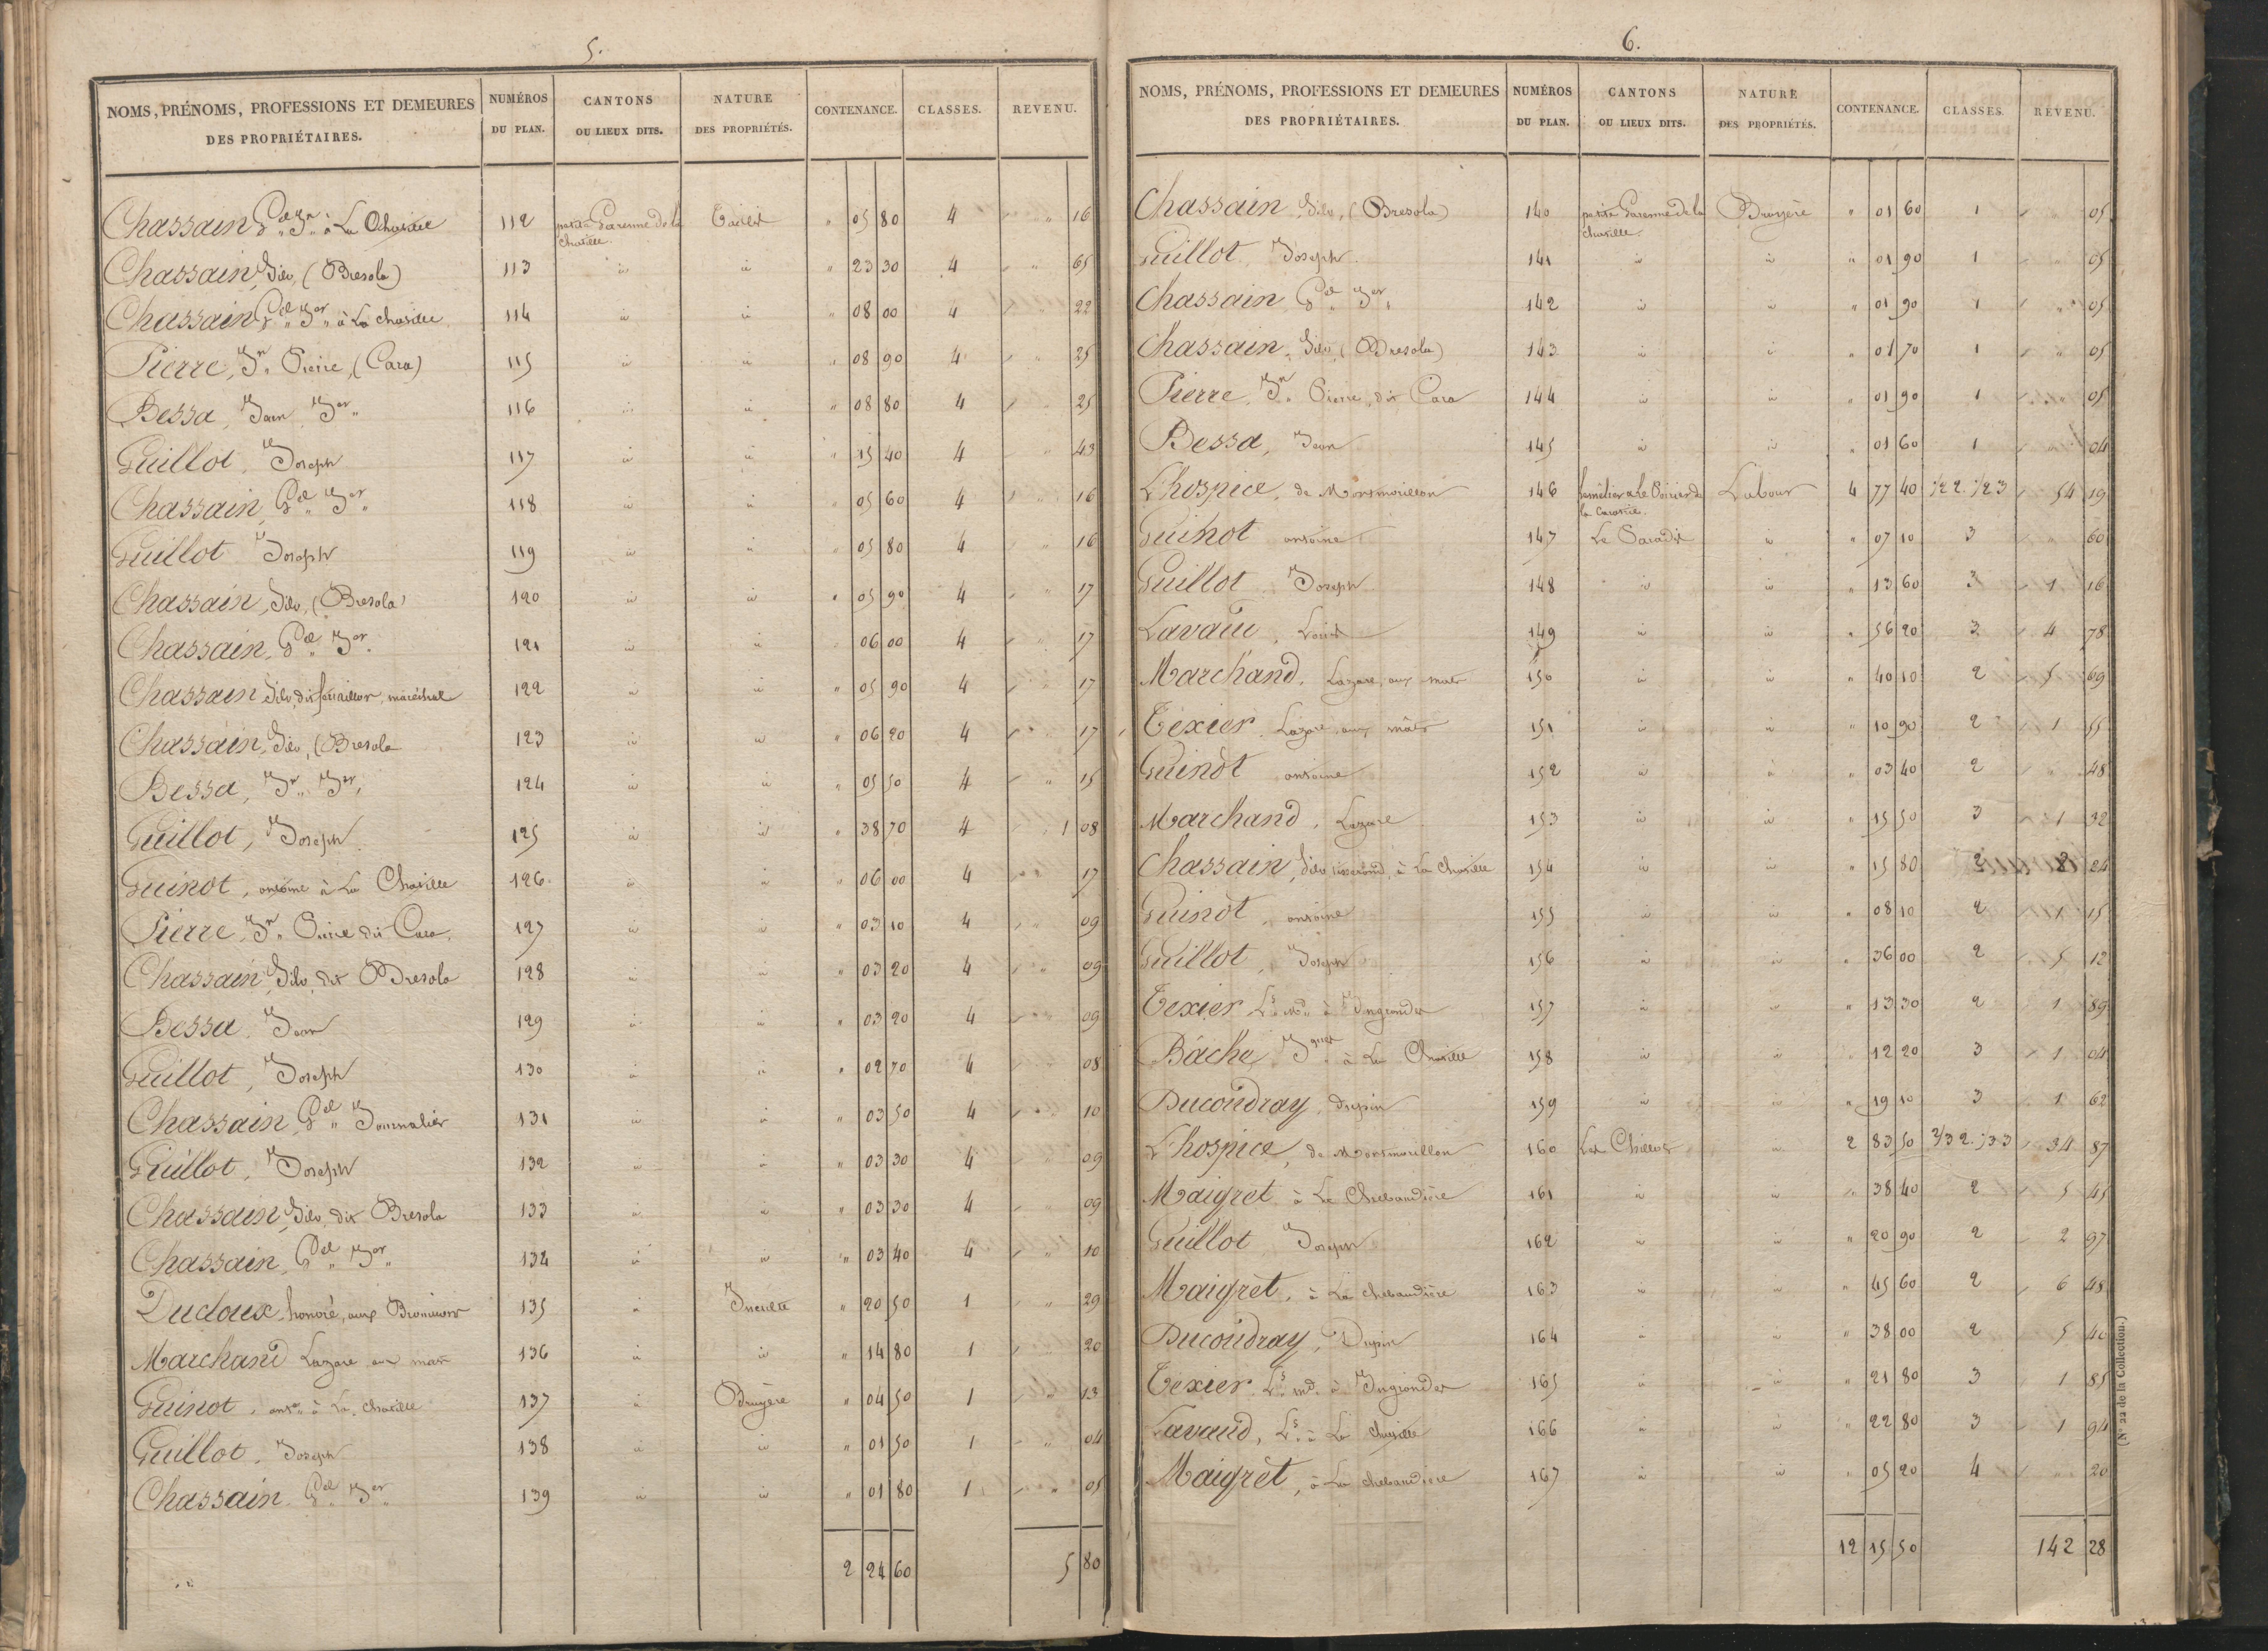 5.
NOMS, PRÉNOMS, PROFESSIONS ET DEMEURES DES PROPRIÉTAIRES. NUMÉROS DU PLAN. CANTONS OU LIEUX DITS. NATURE DES PROPRIÉTÉS. CONTENANCE. CLASSES. REVENU.
Chassain, Gel Jn à La Chaville 112 petite Garenne de la Chaville. Taillis " 05 80 4 " 16
Chassain, Silv, (Bresola) 113 id id " 23 30 4 " 65
Chassain, Gel Jer à La Chaville 114 id id " 08 00 4 " 22
Pierre, Jn Pierre, (Cara) 115 id id " 08 90 4 " 25
Bessa, Jean Jer 116 id id " 08 80 4 " 25
Guillot, Joseph 117 id id " 15 40 4 " 43
Chassain, Gel Jer 118 id id " 05 60 4 " 16
Guillot Joseph 119 id id " 05 80 4 " 16
Chassain, Silv, (Bresola) 120 id id " 05 90 4 " 17
Chassain, Gel Jer 121 id id " 06 00 4 " 17
Chassain Silv, dit maréchal 122 id id " 05 90 4 " 17
Chassain, Silv, (Bresola 123 id id " 06 20 4 " 17
Bessa, Jn Jer, 124 id id " 05 50 4 " 15
Guillot, Joseph 125 id id " 38 70 4 1 08
Guinot, antoine à La Chaville 126 id id " 06 00 4 " 17
Pierre, Jn Pierre dit Cara, 127 id id " 03 10 4 " 09
Chassain, Silv, dit Bresola 128 id id " 03 20 4 " 09
Bessa, Jean 129 id id " 03 20 4 " 09
Guillot, Joseph 130 id id " 02 70 4 " 08
Chassain, Gel Journalier 131 id id " 03 50 4 " 10
Guillot, Joseph 132 id id " 03 30 4 " 09
Chassain, Silv, dit Bresola 133 id id " 03 30 4 " 09
Chassain, Gel Jer 134 id id " 03 40 4 " 10
Dudoux, honoré, aux 135 id Inculte " 20 50 1 " 29
Marchand Lazare aux mats 136 id id " 14 80 1 " 20
Guinot, antne à La Chaville 137 id Bruyère " 04 50 1 " 13
Guillot, Joseph 138 id id " 01 50 1 " 04
Chassain, Gel Jer 139 id id " 01 80 1 " 05
2 24 60 5 80
6.
NOMS, PRÉNOMS, PROFESSIONS ET DEMEURES DES PROPRIÉTAIRES. NUMÉROS DU PLAN. CANTONS OU LIEUX DITS. NATURE DES PROPRIÉTÉS. CONTENANCE. CLASSES. REVENU.
Chassain, Silv, (Bresola) 140 petite Garenne de la Chaville. Bruyère " 01 60 1 " 05
Guillot, Joseph 141 id id " 01 90 1 " 05
Chassain, Gel Jer, 142 id id " 01 90 1 " 05
Chassain, Silv, (Bresola) 143 id id " 01 70 1 " 05
Pierre, Jn Pierre, dit Cara 144 id id " 01 90 1 " 05
Bessa, Jean 145 id id " 01 60 1 " 04
L'hospice, de Montmorillon 146 Labour 4 77 40 1/2 2. 1/2 3 54 19
Guinot antoine 147 Le Paradis id " 07 10 3 " 60
Guillot Joseph 148 id id " 13 60 3 1 16
Lavaud, Louis 149 id id " 56 20 3 4 78
Marchand, Lazare, aux mats 150 id id " 40 10 2 5 69
Texier, Lazare, aux mâts 151 id id " 10 90 2 1 55
Guinot antoine 152 id id " 03 40 2 " 48
Marchand, Lazare 153 id id " 15 50 3 1 32
Chassain, Silv, tisserand, à La Chaville 154 id id " 15 80 2 2 24
Guinot, antoine 155 id id " 08 10 2 1 15
Guillot, Joseph 156 id id " 36 00 2 5 12
Texier Ls Md à Ingrandes 157 id id " 13 30 2 1 89
Bâche, à La Chaville 158 id id " 12 20 3 1 04
Ducoudray, dupin 159 id id " 19 10 3 1 62
L'hospice, de Montmorillon 160 Les id 2 83 50 2/3 2. 1/3 3 34 87
Maigret, à La Chebaudière 161 id id " 38 40 2 5 45
Guillot Joseph 162 id id " 20 90 2 2 97
Maigret, à La Chebaudière 163 id id " 45 60 2 6 48
Ducoudray, Dupin 164 id id " 38 00 2 5 40
Texier, Ls md à Ingrandes 165 id id " 21 80 3 1 85
Lavaud, Ls à La Chaville 166 id id " 22 80 3 1 94
Maigret, à La chebaudière 167 id id " 05 20 4 " 20
12 15 50 142 28
(No 22 de la Collection.)